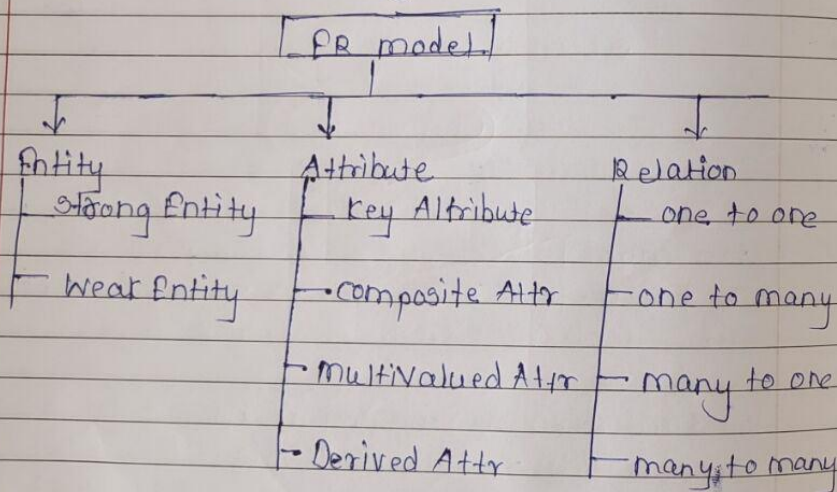 ER model
Entity
Strong Entity
Weak Entity
Attribute
Key Attribute
composite Attr
multivalued Attr
Derived Attr
Relation
one to one
one to many
many to one
many to many